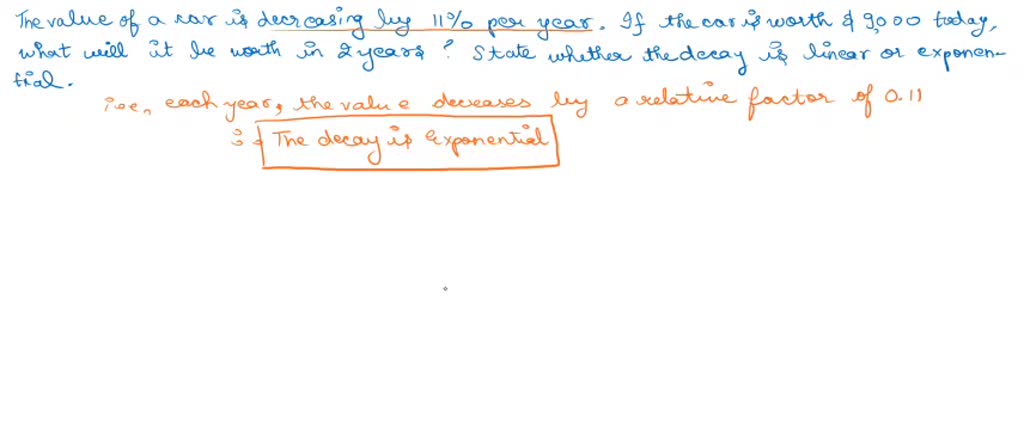 The value of a car is decreasing by 11% per year. If the car is worth $ 9,000 today,
what will it be worth in 2 years? State whether the decay is linear or exponen-
tial.
i.e., each year, the value decreases by a relative factor of 0.11
∴ The decay is exponential